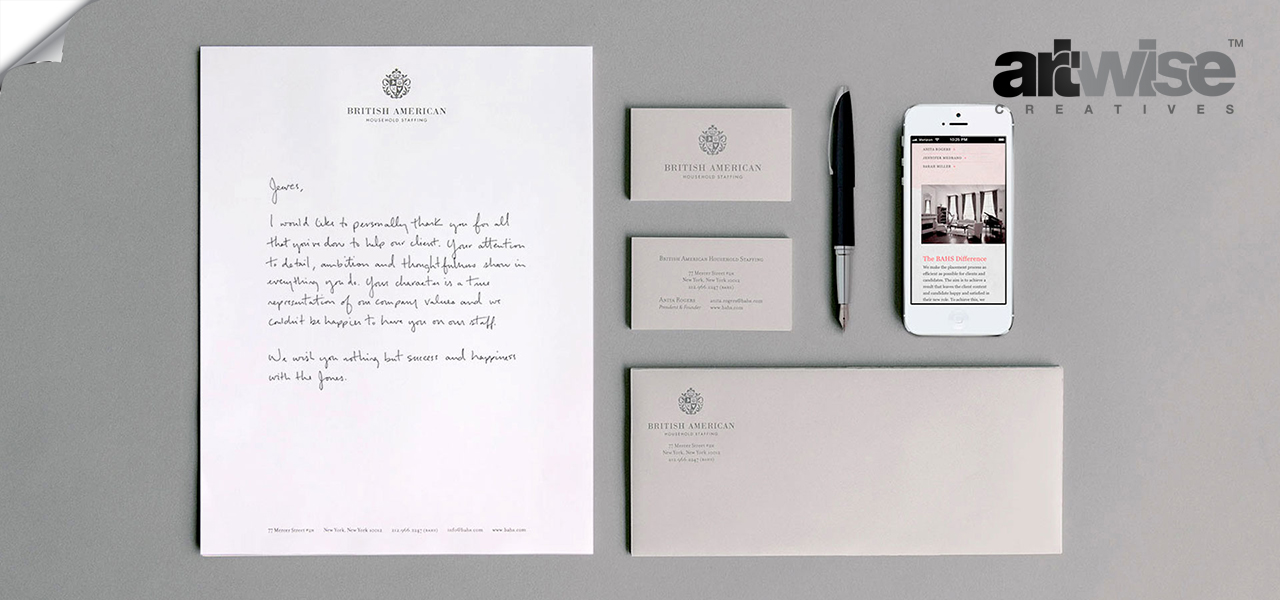 artwise™
CREATIVES
BRITISH AMERICAN
HOUSEHOLD STAFFING
Jeeves,
I would like to personally thank you for all
that you've done to help our client. Your attention
to detail, ambition and thoughtfulness show in
everything you do. Your character is a true
representation of our company values and we
couldn't be happier to have you on our staff.
We wish you nothing but success and happiness
with the Jones.
77 Mercer Street New York, New York 10012 212.966.2247 (BAHS) info@bahs.com www.bahs.com
BRITISH AMERICAN
HOUSEHOLD STAFFING
British American Household Staffing
77 Mercer Street
New York, New York 10012
212.966.2247 (BAHS)
Anita Rogers anita.rogers@bahs.com
President & Founder www.bahs.com
Verizon 10:25 PM
ANITA ROGERS >
JENNIFER MEDRANO >
SARAH MILLER >
The BAHS Difference
We make the placement process as
efficient as possible for clients and
candidates. The aim is to achieve a
result that leaves the client content
and candidate happy and satisfied in
their new role. To achieve this, we
BRITISH AMERICAN
HOUSEHOLD STAFFING
77 Mercer Street
New York, New York 10012
212.966.2247 (BAHS)